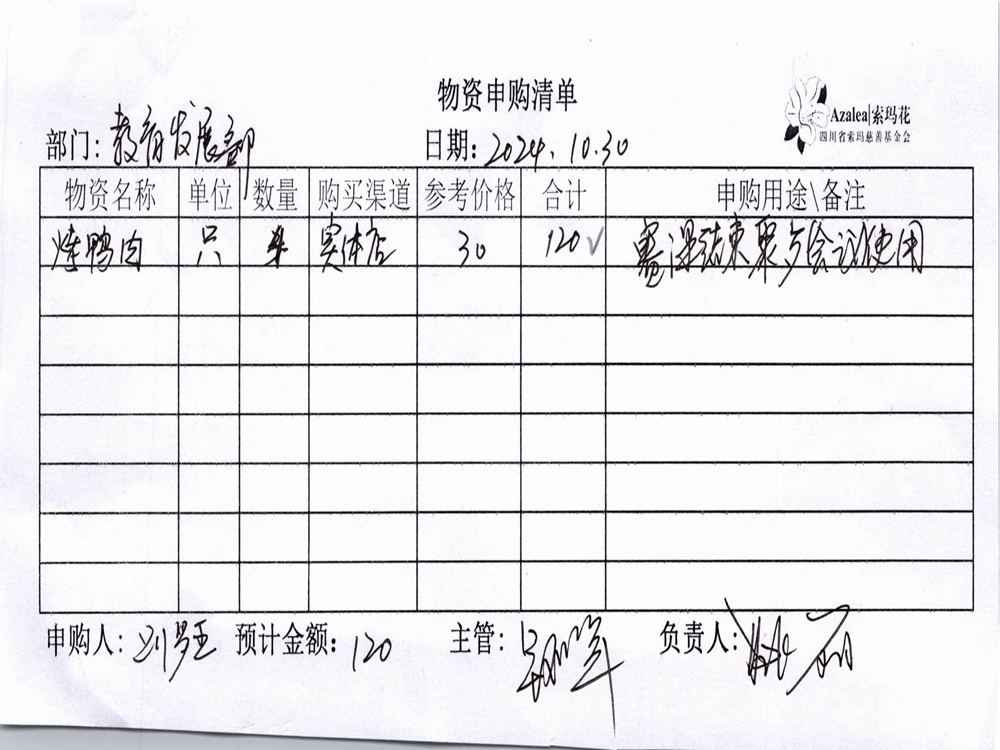 物资申购清单
Azalea|索玛花
四川省索玛慈善基金会
部门：教育发展部 日期：2024.10.30
物资名称 单位 数量 购买渠道 参考价格 合计 申购用途\备注
烤鸭肉 只 4 实体店 30 120✓ 结束聚会议使用
申购人：刘 预计金额：120 主管： 负责人：